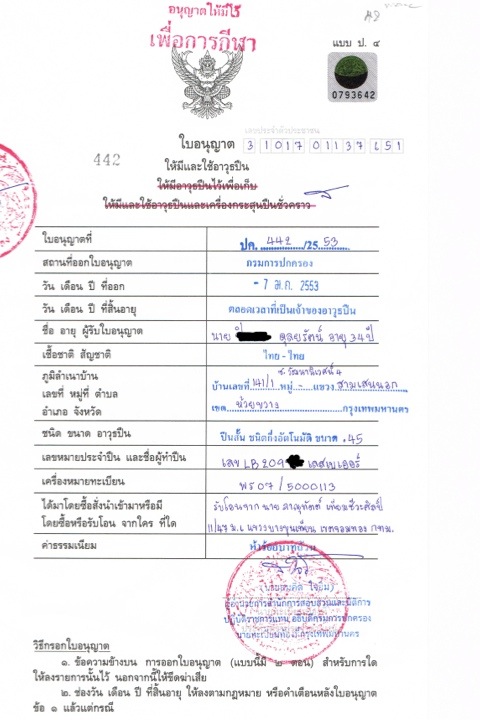 อนุญาตให้มีไว้
เพื่อการกีฬา
แบบ ป. ๔
0793642
เลขประจำตัวประชาชน
ใบอนุญาต
442
ให้มีและใช้อาวุธปืน
ให้มีอาวุธปืนไว้เพื่อเก็บ
ให้มีและใช้อาวุธปืนและเครื่องกระสุนปืนชั่วคราว
ใบอนุญาตที่ ปค. 442 /25 53
สถานที่ออกใบอนุญาต กรมการปกครอง
วัน เดือน ปี ที่ออก - 7 2553
วัน เดือน ปี ที่สิ้นอายุ ตลอดเวลาที่เป็นเจ้าของอาวุธปืน
ชื่อ อายุ ผู้รับใบอนุญาต นาย ดุลยรัตน์ อายุ 34 ปี
เชื้อชาติ สัญชาติ ไทย - ไทย
ภูมิลำเนาบ้าน
เลขที่ หมู่ที่ ตำบล บ้านเลขที่ 141/1 หมู่ - แขวง สามเสนนอก
อำเภอ จังหวัด เขต ห้วยขวาง กรุงเทพมหานคร
ชนิด ขนาด อาวุธปืน ปืนสั้น ชนิดกึ่งอัตโนมัติ ขนาด .45
เลขหมายประจำปืน และชื่อผู้ทำปืน เลข LB 209
เครื่องหมายทะเบียน 07 / 5000113
ได้มาโดยซื้อสั่งนำเข้ามาหรือมี รับโอนจาก นาย
โดยซื้อหรือรับโอน จากใคร ที่ใด 11/47 ม.6 แขวงบางขุนเทียน เขตจอมทอง กทม.
ค่าธรรมเนียม
ปฏิบัติราชการแทน อธิบดีกรมการปกครอง
วิธีกรอกใบอนุญาต
๑. ข้อความข้างบน การออกใบอนุญาต (แบบนี้มี ๒ ตอน) สำหรับการใด
ให้ลงรายการนั้นไว้ นอกจากนี้ให้ขีดฆ่าเสีย
๒. ช่องวัน เดือน ปี ที่สิ้นอายุ ให้ลงตามกฎหมาย หรือคำเตือนหลังใบอนุญาต
ข้อ ๑ แล้วแต่กรณี